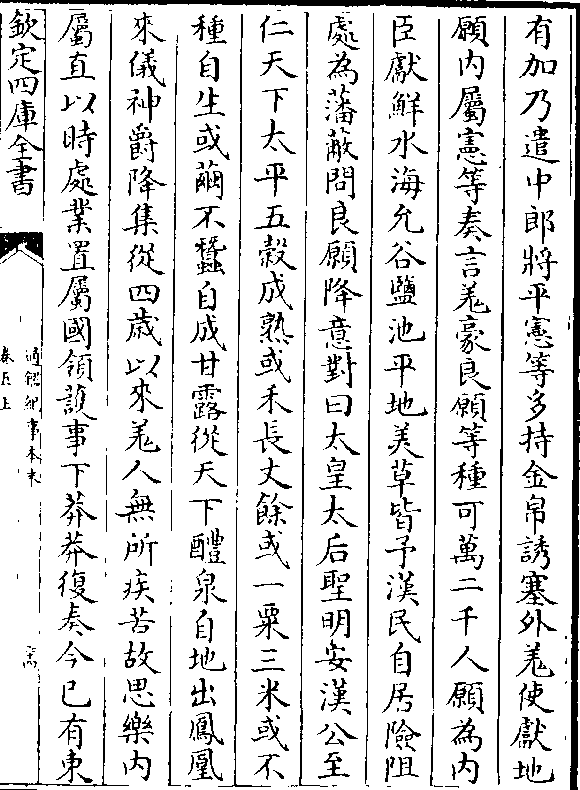 有加乃遣中郎將平憲等多持金帛誘塞外羌使獻地
願内屬憲等奏言羌豪良願等種可萬二千人願為内
臣獻鮮水海允谷鹽池平地美草皆予漢民自居險阻
處為藩蔽問良願降意對曰太皇太后聖明安漢公至
仁天下太平五穀成熟或禾長丈餘或一粟三米或不
種自生或繭不蠶自成甘露從天下醴泉自地出鳳凰
來儀神爵降集從四歲以來羌人無所疾苦故思樂内
屬直以時處業置屬國領護事下莽莽復奏今已有東
欽定四庫全書
通鑑紀事本末
卷五上